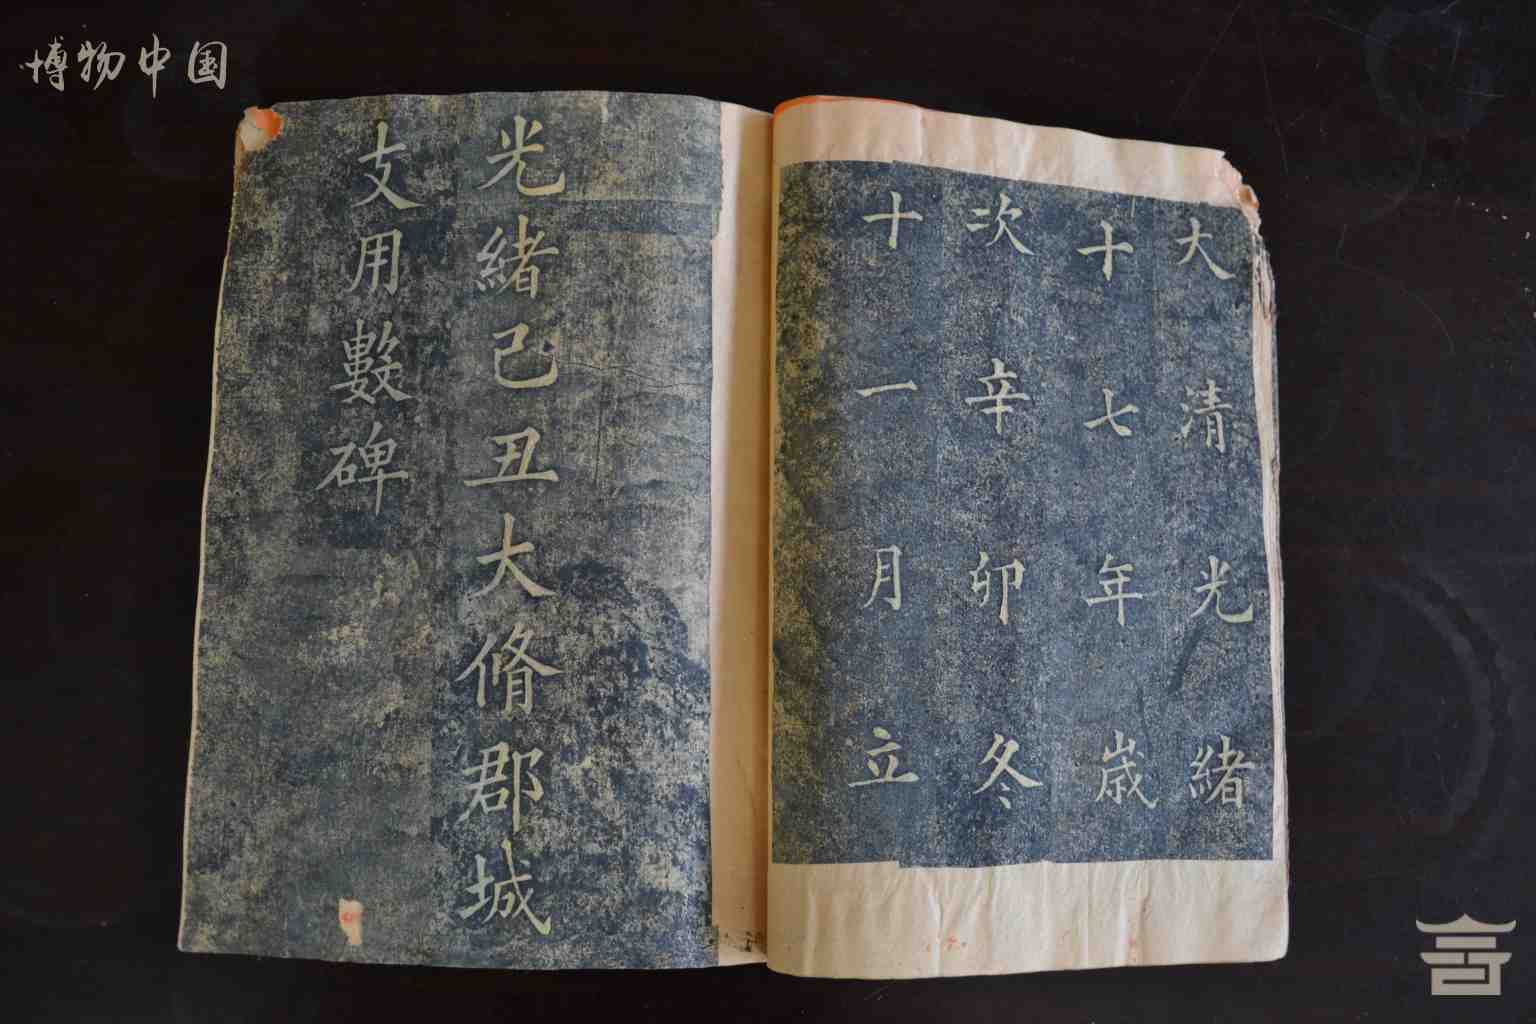 博物中国
大清光緒
十七年歲
次辛卯冬
十一月立
光緒己丑大脩郡城
支用數碑